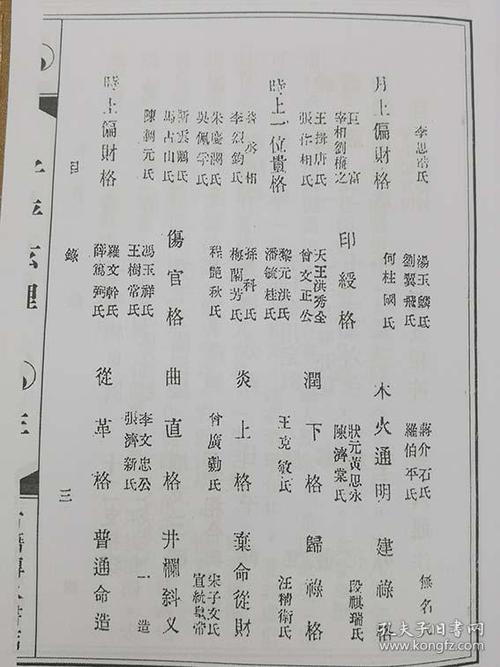 湯玉麟氏
劉翼飛氏
蔣介石氏
羅伯平氏
無名氏
月上偏財格
何柱國氏
木火通明
建祿格
巨富
印綬格
狀元黃思永
陳濟棠氏
段祺瑞氏
王揖唐氏
張作相氏
天王洪秀全
曾文正公
潤下格
歸祿格
時上一位貴格
黎元洪氏
潘毓桂氏
王克敏氏
汪精衛氏
李烈鈞氏
孫科氏
梅蘭芳氏
炎上格
棄命從財
朱慶瀾氏
吳佩孚氏
程艷秋氏
曾廣勷氏
宋子文氏
宣統皇帝
靳雲鵬氏
馬占山氏
傷官格
曲直格
井欄斜义
陳調元氏
馮玉祥氏
王樹常氏
李文忠公
張濟新氏
一造
時上偏財格
羅文幹氏
薛篤弼氏
從革格
普通命造
目錄
三
孔夫子旧书网
www.kongfz.com